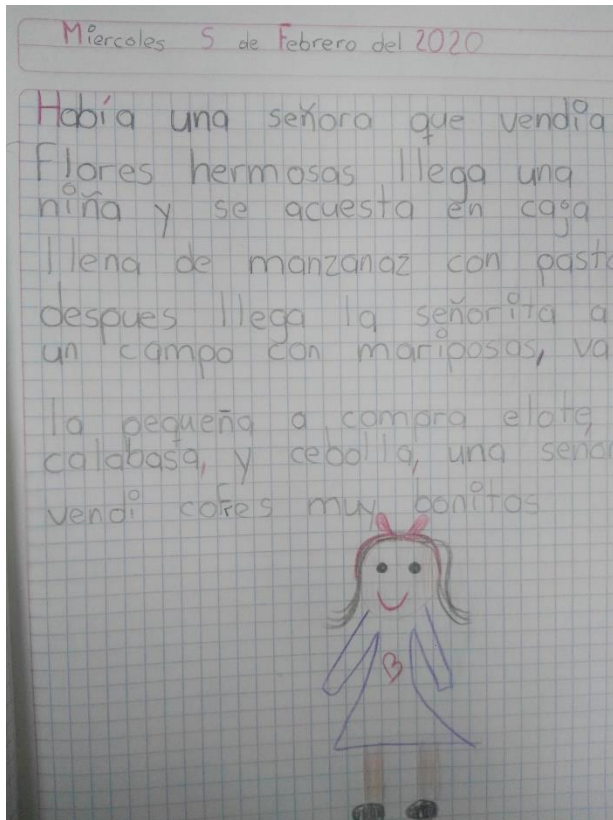 Miercoles 5 de Febrero del 2020
Había una señora que vendia
Flores hermosas llega una
niña y se acuesta en caja
llena de manzanaz con pasto
despues llega la señorita a
un campo con mariposas, va
la pequeña a compra elote,
calabasa, y cebolla, una señor
vendi cofres muy bonitos